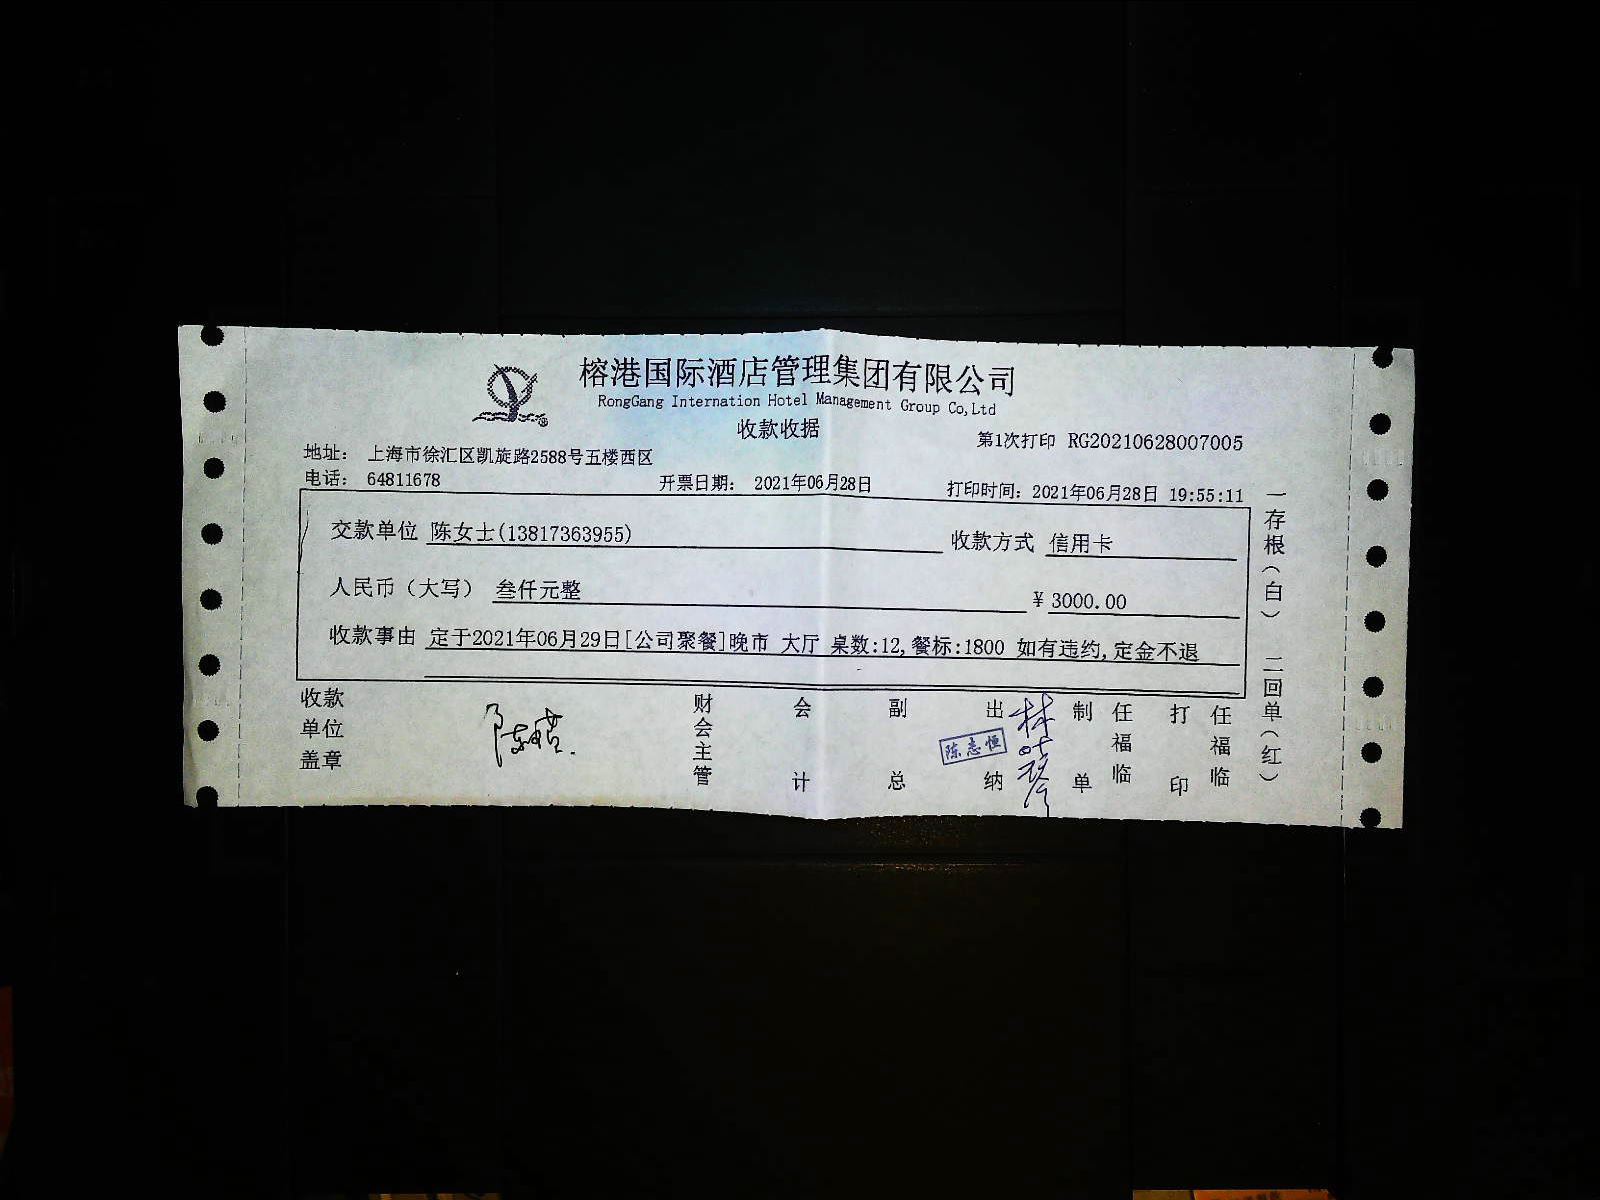 榕港国际酒店管理集团有限公司
RongGang Internation Hotel Management Group Co,Ltd
收款收据
第1次打印 RG20210628007005
地址： 上海市徐汇区凯旋路2588号五楼西区
电话： 64811678 开票日期： 2021年06月28日 打印时间：2021年06月28日 19:55:11
交款单位 陈女士(13817363955) 收款方式 信用卡
人民币（大写） 叁仟元整 ¥ 3000.00
收款事由 定于2021年06月29日[公司聚餐]晚市 大厅 桌数:12,餐标:1800 如有违约,定金不退
收款单位盖章
财会主管
会计
副总
出纳
陈志恒
制单
任福临
打印
任福临
一存根（白） 二回单（红）